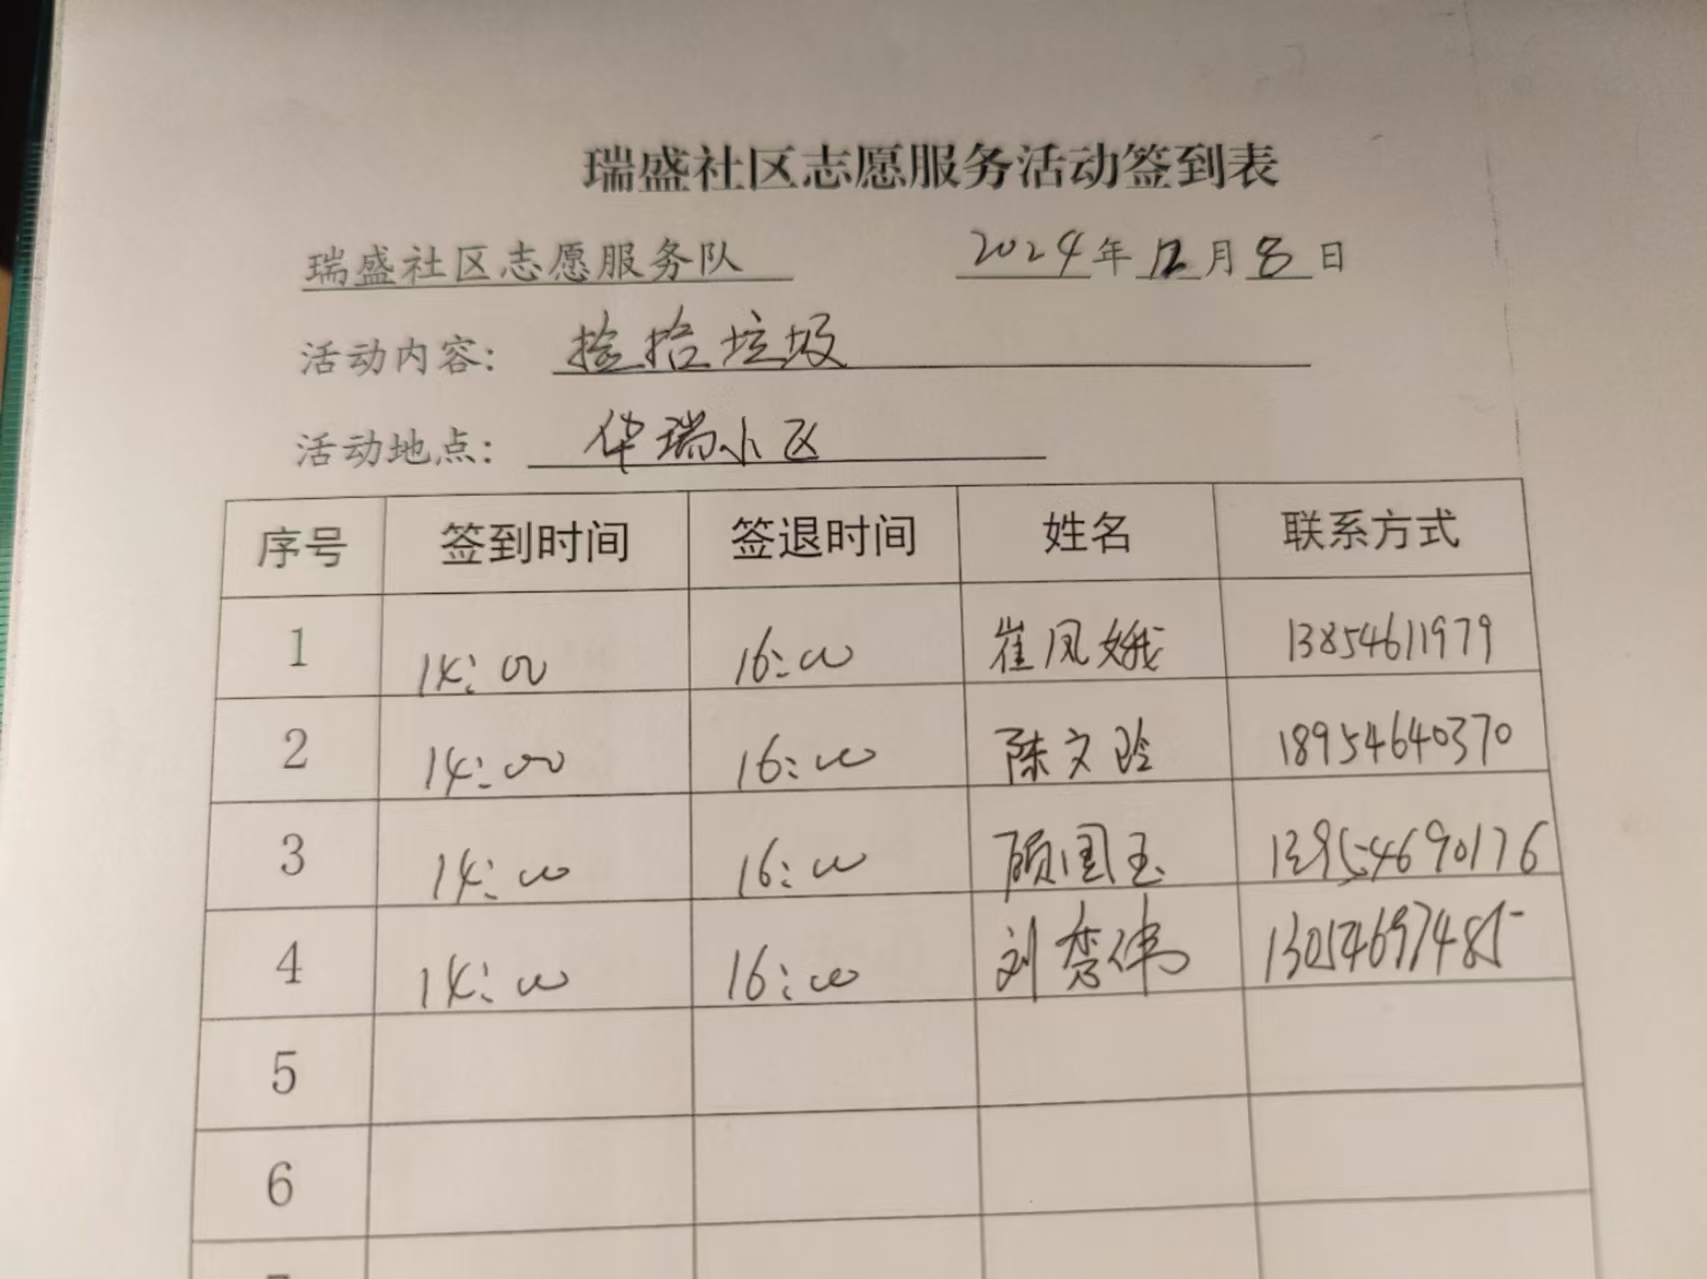 瑞盛社区志愿服务活动签到表
瑞盛社区志愿服务队 2024年12月8日
活动内容: 捡拾垃圾
活动地点: 华瑞小区
序号 签到时间 签退时间 姓名 联系方式
1 14:00 16:00 崔凤娥 13854611979
2 14:00 16:00 陈文玲 18954640370
3 14:00 16:00 顾国玉 13954690176
4 14:00 16:00 刘秀伟 13054697485
5
6